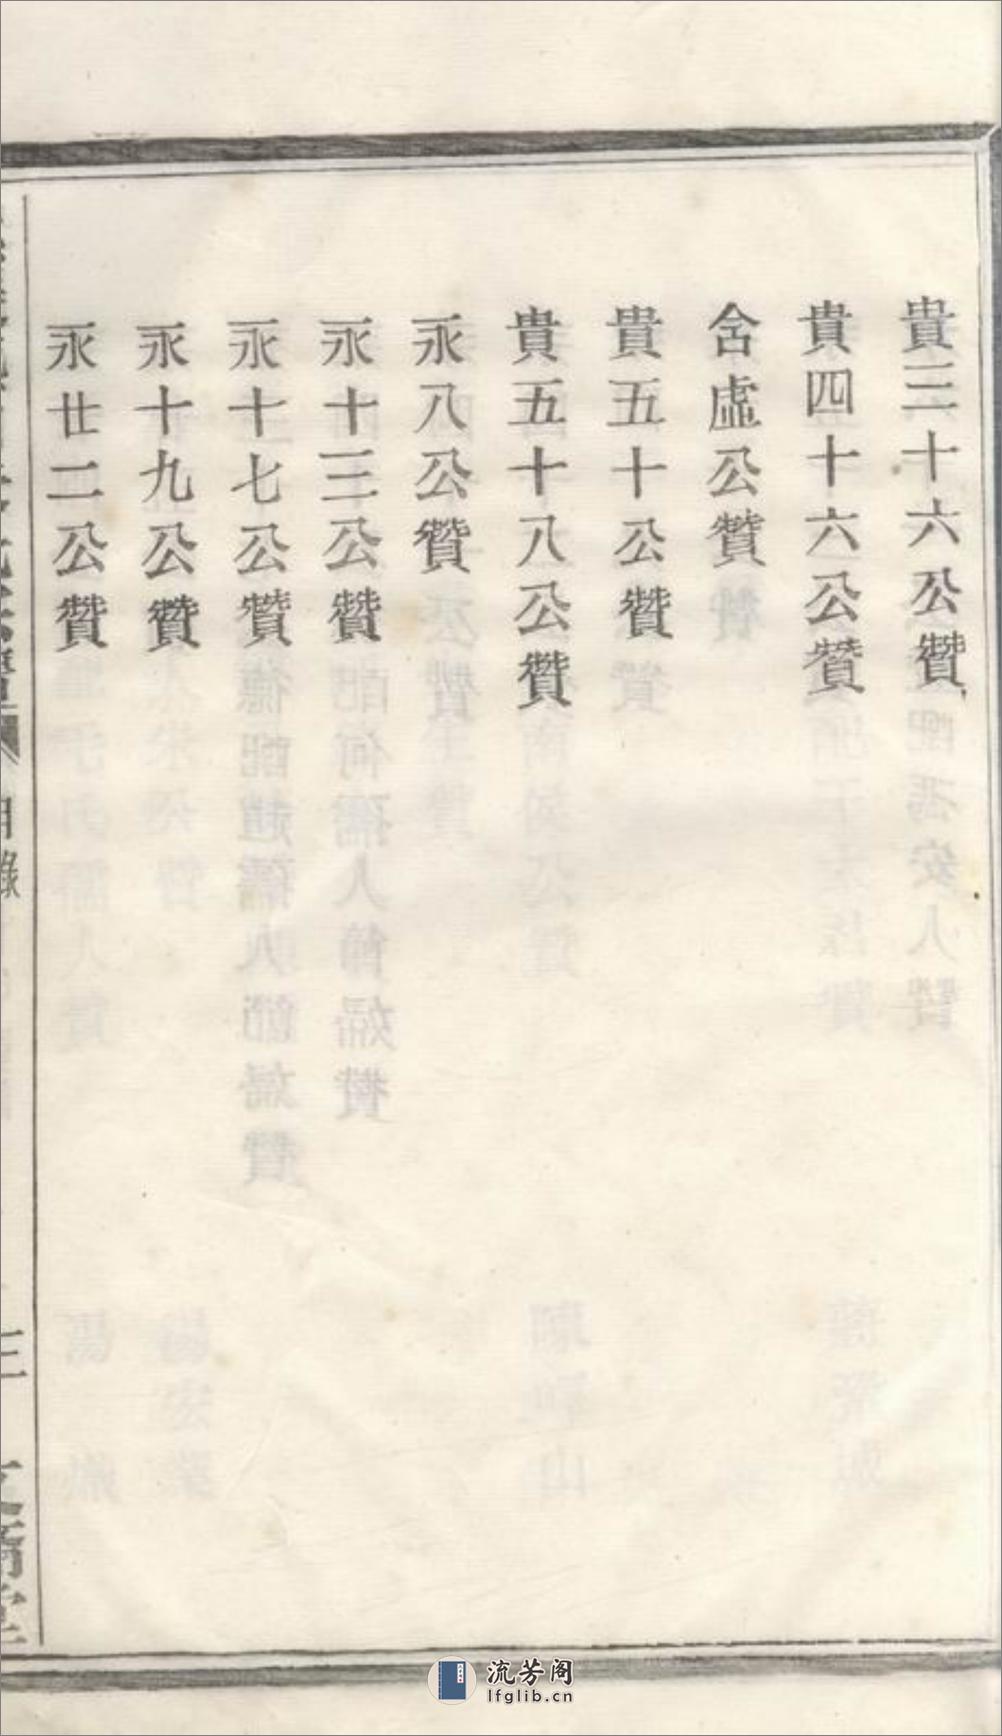 貴三十六公贊
貴四十六公贊
含虛公贊
貴五十公贊
貴五十八公贊
永八公贊
永十三公贊
永十七公贊
永十九公贊
永廿二公贊
目錄
三
流芳阁
lfglib.cn